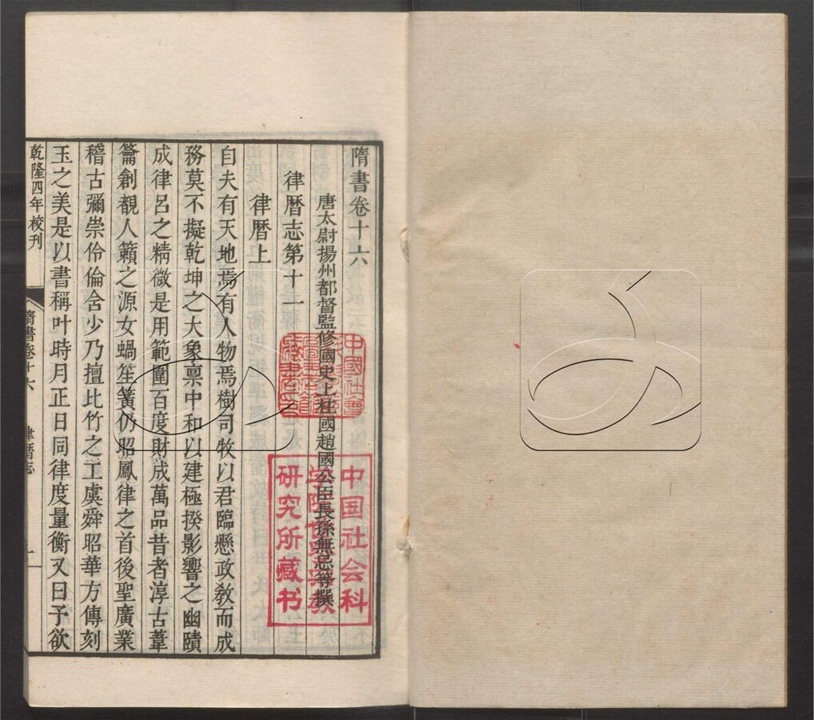 隋書卷十六
唐太尉揚州都督監修國史上柱國趙國公臣長孫無忌等撰
律曆志第十一
律曆上
自夫有天地焉有人物焉樹司牧以君臨懸政教而成
務莫不擬乾坤之大象稟中和以建極揆影響之幽賾
成律呂之精微是用範圍百度財成萬品昔者淳古葦
籥創覩人籟之源女蝸笙簧仍昭鳳律之首後聖廣業
稽古彌崇伶倫含少乃擅比竹之工虞舜昭華方傳刻
玉之美是以書稱叶時月正日同律度量衡又曰予欲
乾隆四年校刊
隋書卷十六
律曆志
一
中國社會
中国社会科
研究所藏书